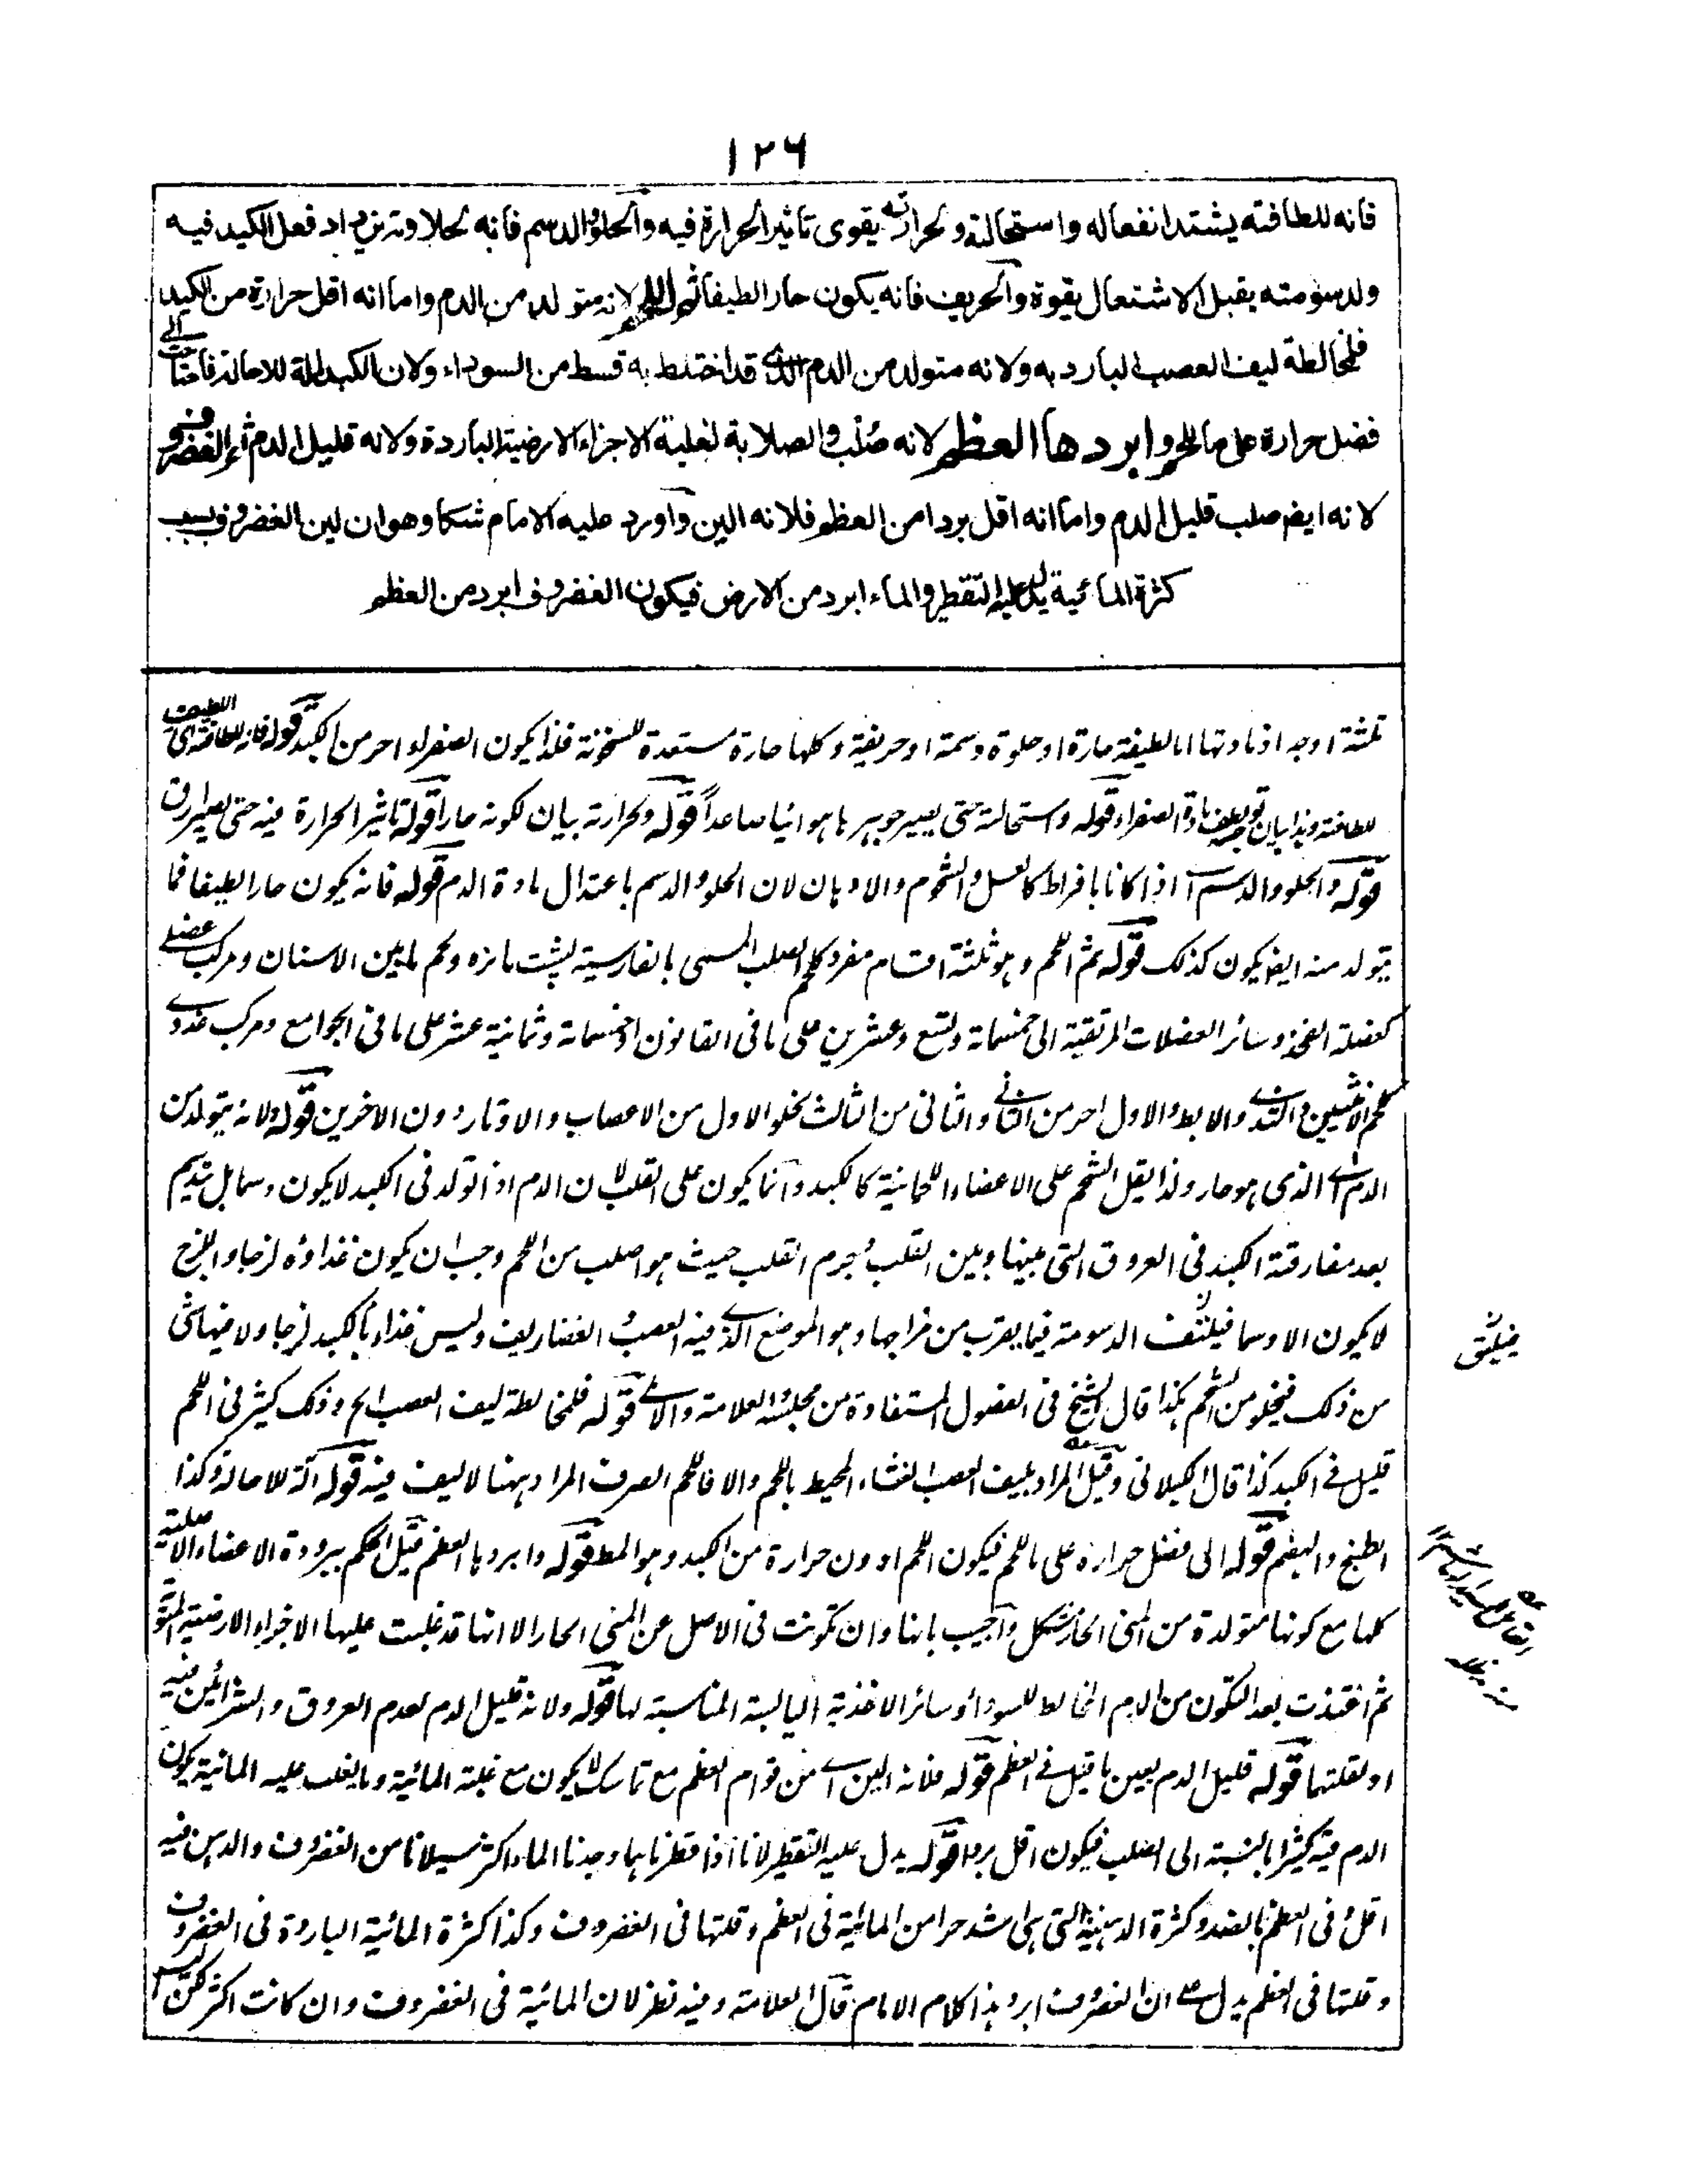 ١٢٦
فانه للطافته يشتد انفعاله واستحالته ولحرارته يقوى تاثير الحرارة فيه والحلو والدسم فانه لحلاوته يزداد فعل الكبد فيه
ولدسومته يقبل الاشتعال بقوة والحريف فانه يكون حارا لطيفا ثم اللحم لانه متولد من الدم واما انه اقل حرارة من الكبد
فلمخالطة ليف العصب البارد به ولانه متولد من الدم الذى قد اختلط به قسط من السوداء ولان الكبد الة للاحالة فاحتاجت الى
فضل حرارة على ما للحم وابردها العظم لانه صلب والصلابة لغلبة الاجزاء الارضية الباردة ولانه قليل الدم ثم الغضروف
لانه ايضا صلب قليل الدم واما انه اقل بردا من العظم فلانه الين واورد عليه الامام شكا وهو ان لين الغضروف بسبب
كثرة المائية يدل عليه التقطير والماء ابرد من الارض فيكون الغضروف ابرد من العظم
ثلثة اوجه اذ مادتها اما لطيفة حارة او حلوة دسمة او حريفية وكلها حارة مستعدة للسخونة فلذا يكون الصفراء احر من الكبد قوله فانه للطافته اى اللطيف
للطافته وهذا بيان لطف مادة الصفراء قوله واستحالته حتى يصير جوهرها هوائيا صاعداً قوله ولحرارته بيان لكونه حارا قوله تاثير الحرارة فيه حتى يصير ارق
قوله والحلو والدسم اى اذا كانا بافراط كالعسل والشحوم والادهان لان الحلو والدسم باعتدال مادة الدم قوله فانه يكون حارا لطيفا فما
يتولد منه ايضا يكون كذلك قوله ثم اللحم وهو ثلثة اقسام مفرد كلحم الصلب المسمى بالفارسية پشت مازه ولحم مابين الاسنان ومركب عضلى
كعضلة الفخذ وسائر العضلات المرتقية الى خمسمائة وتسع وعشرين على ما فى القانون او خمسمائة وثمانية عشر على ما فى الجوامع ومركب غددى
كلحم الانثيين والثدى والابط والاول احر من الثانى والثانى من الثالث لخلو الاول من الاعصاب والاوتار دون الاخرين قوله ولانه يتولد من
الدم اى الذى هو حار ولذا يقل الشحم على الاعضاء اللحمانية كالكبد وانما يكون على القلب لان الدم اذا تولد فى الكبد لا يكون دسما بل يتدسم
بعد مفارقة الكبد فى العروق التى بينها وبين القلب وجرم القلب حيث هو اصلب من اللحم وجب ان يكون غذاؤه لزجا واللزج
لا يكون الا دسما فيلتف الدسومة فيما يقرب من مزاجها وهو الموضع الذى فيه العصب والغضاريف وليس غذاء الكبد لزجا ولا فيها شئ
من ذلك فيخلو من الشحم هكذا قال الشيخ فى الفصول المستفادة من مجلسه العلامة والآملى قوله فلمخالطة ليف العصب الخ وذلك كثير فى اللحم
قليل فى الكبد كذا قال الگيلانى وقيل المراد بليف العصب الغشاء المحيط باللحم والا فاللحم الصرف المراد ههنا لا ليف فيه قوله آلة للاحالة وكذا
الطبخ والهضم قوله الى فضل حرارة على ما للحم فيكون اللحم ادون حرارة من الكبد وهو المط قوله وابردها العظم قيل الحكم ببرودة الاعضاء الاصلية
كلها مع كونها متولدة من المنى الحار مشكل واجيب بانها وان تكونت فى الاصل عن المنى الحار الا انها قد غلبت عليها الاجزاء الارضية
ثم اغتذت بعد التكون من الدم المخالط للسوداء وسائر الاغذية اليابسة المناسبة لها قوله ولانه قليل الدم لعدم العروق والشرائين فيه
او لقلتها قوله قليل الدم بعين ما قيل فى العظم قوله فلانه الين اى من قوام العظم مع تماسك لا يكون مع غلبة المائية وما يغلب عليه المائية يكون
الدم فيه كثيرا بالنسبة الى الصلب فيكون اقل بردا قوله يدل عليه التقطير لانا اذا قطرناهما وجدنا الماء اكثر سيلانا من الغضروف والدهن فيه
اقل وفى العظم بالضد وكثرة الدهنية التى هى اشد حرا من المائية فى العظم وقلتها فى الغضروف وكذا كثرة المائية الباردة فى الغضروف
وقلتها فى العظم يدل على ان الغضروف ابرد هذا كلام الامام قال العلامة وفيه نظر لان المائية فى الغضروف وان كانت اكثر لكن
فيلتق